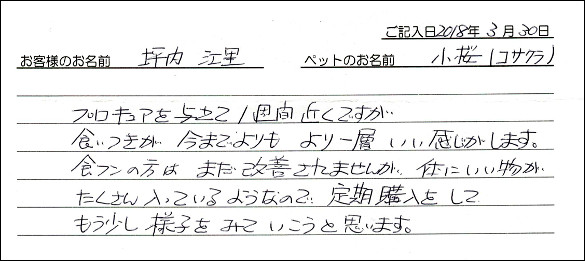 ご記入日2018年3月30日
お客様のお名前 坪内 江里 ペットのお名前 小桜(コサクラ)
プロキュアを与えて1週間近くですが
食いつきが今までよりもより一層いい感じがします。
食フンの方はまだ改善されませんが、体にいい物が
たくさん入っているようなので、定期購入をして
もう少し様子をみていこうと思います。